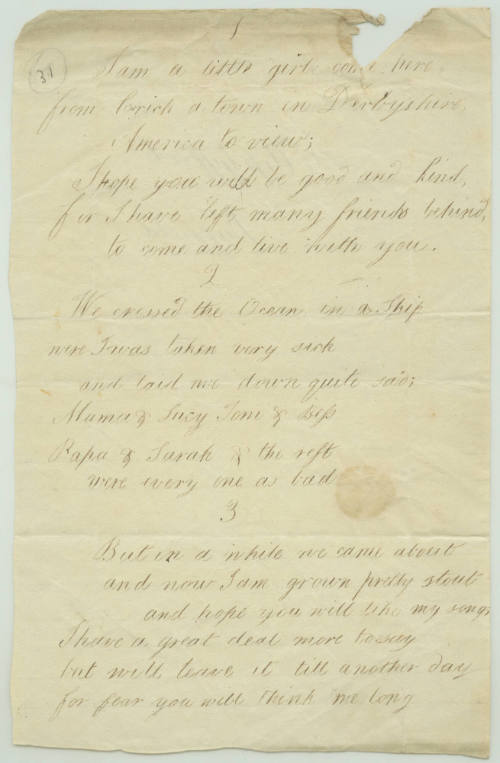 1
31
I am a little girl come here
from Crich a town in Derbyshire,
America to view;
I hope you will be good and kind,
for I have left many friends behind,
to come and live with you.
2
We cressd the Ocean in a Ship
were I was taken very sick
and laid me down quite sad;
Mama & Lucy Tom & Bess
Papa & Sarah & the rest
were every one as bad
3
But in a while we came about
and now I am grown pretty stout
and hope you will like my song;
I have a great deal more to say
but will leave it till another day
for fear you will think me long